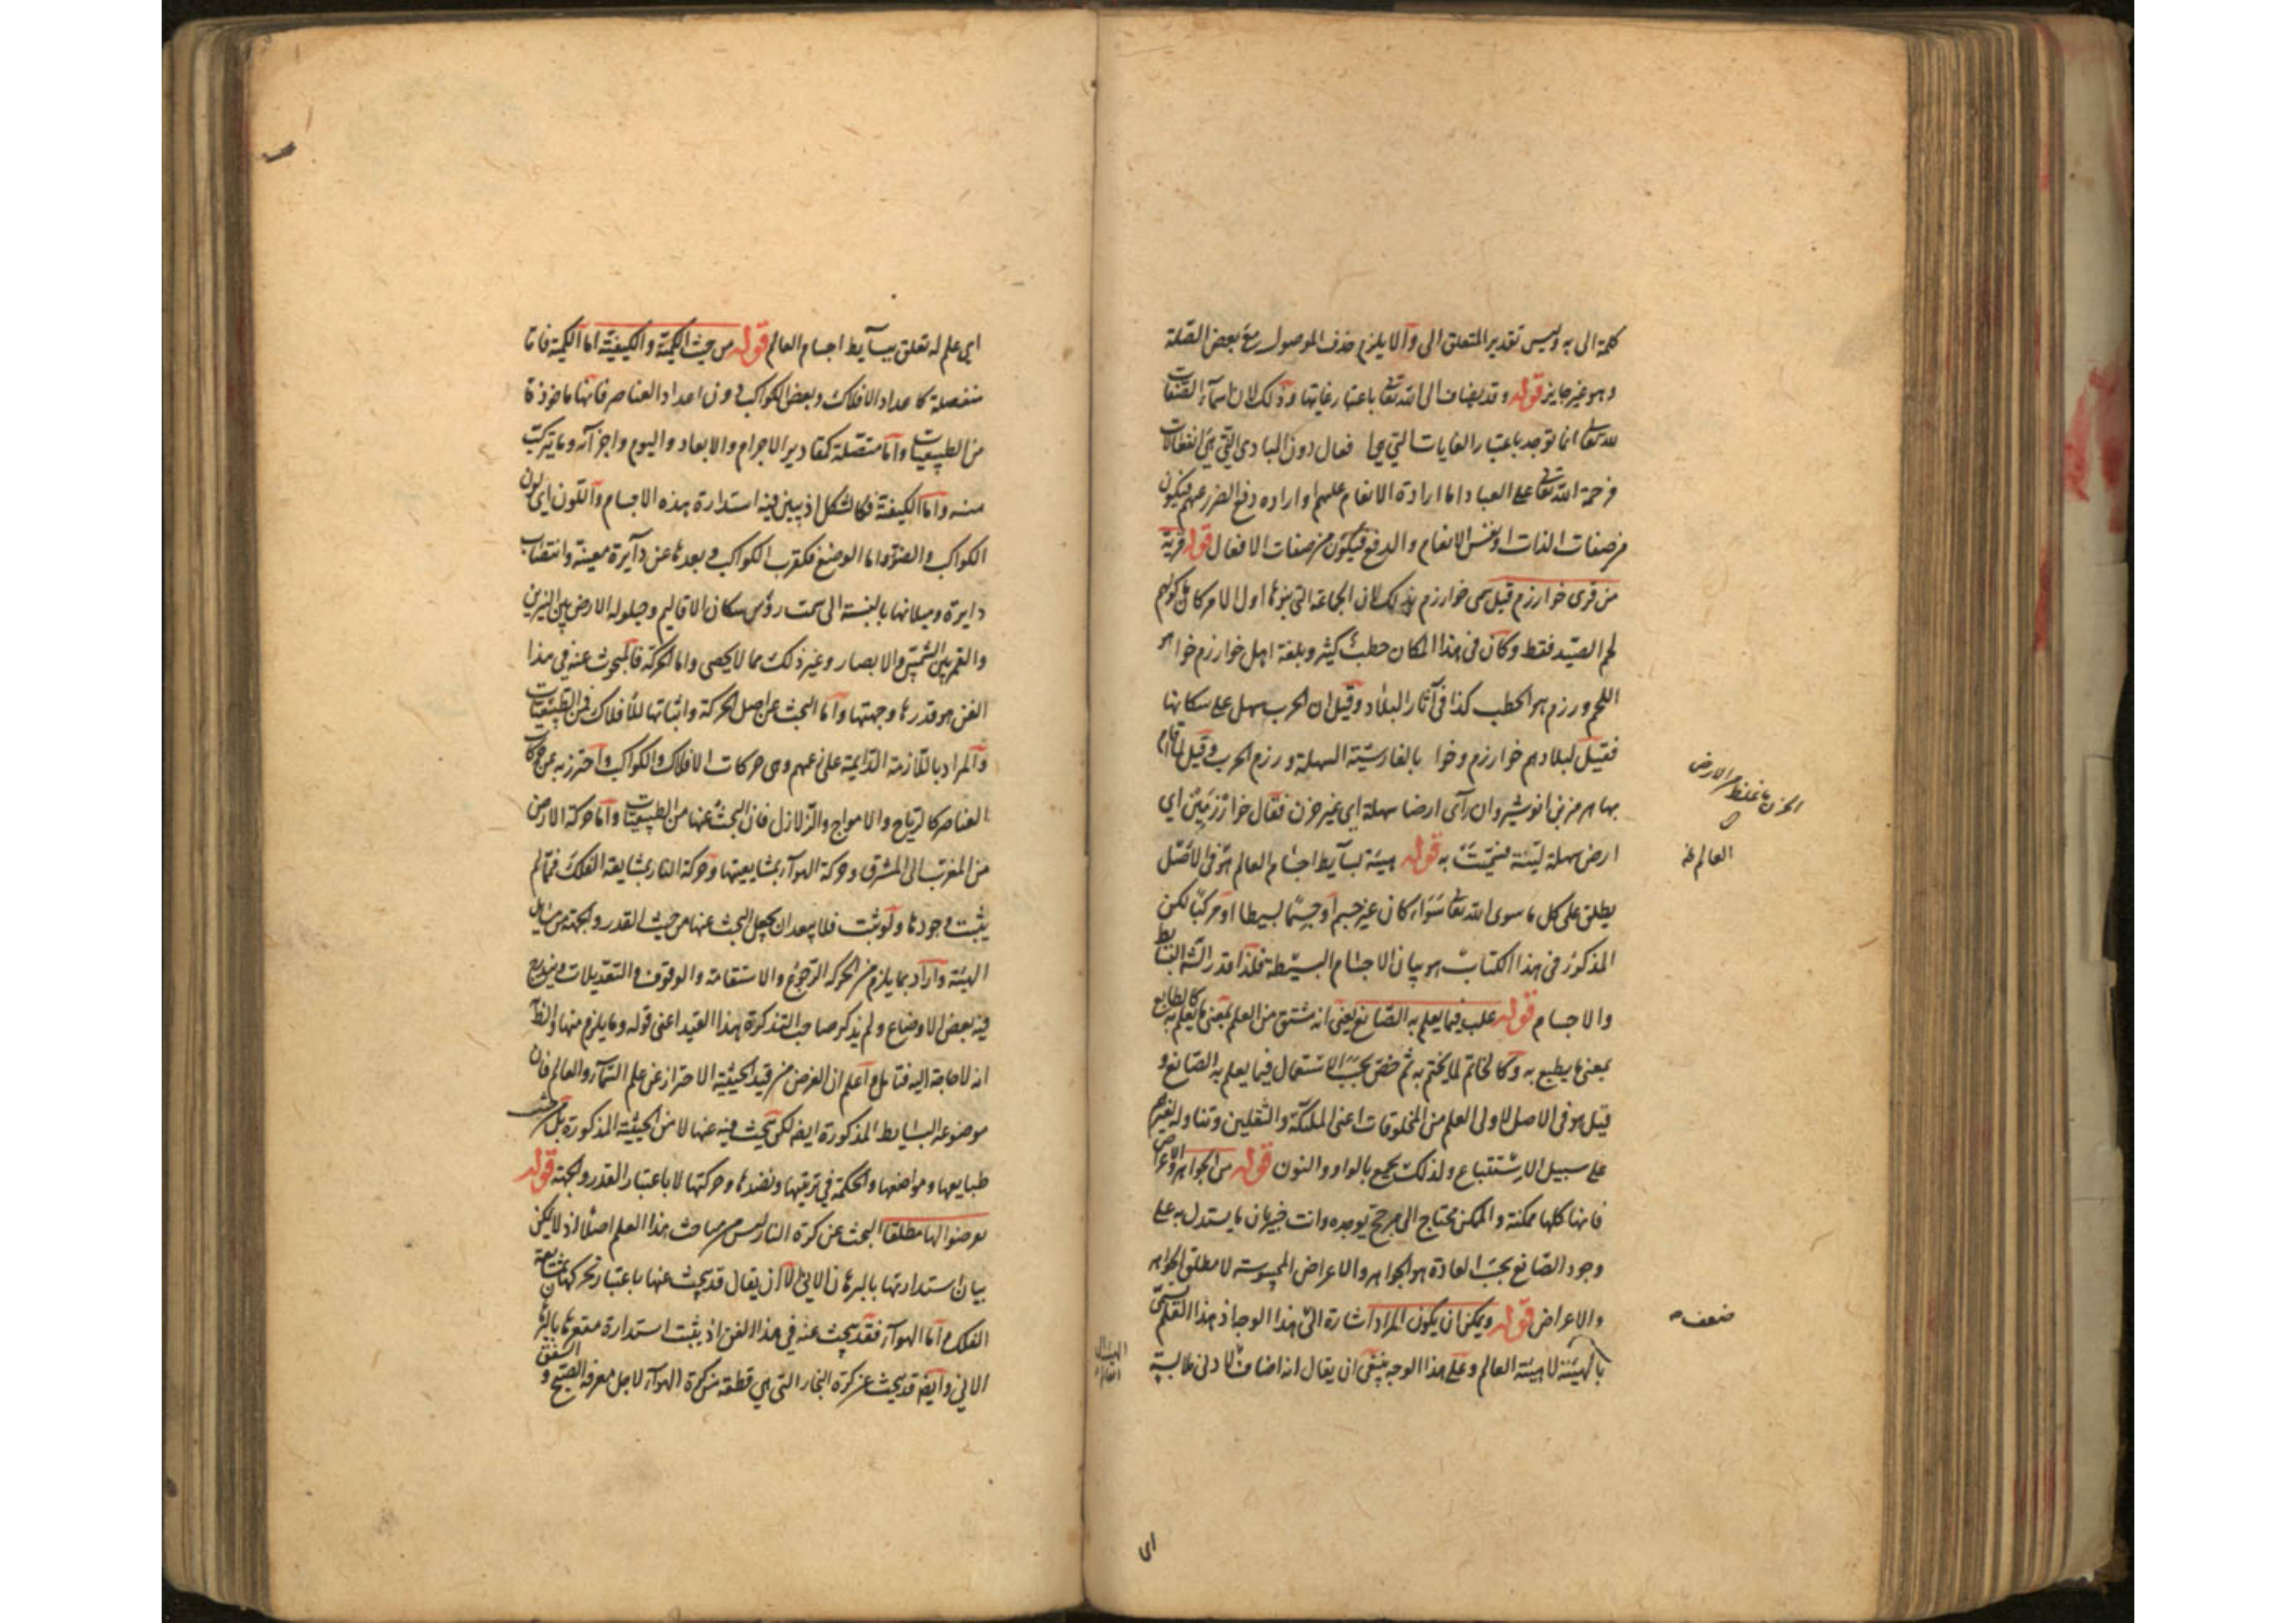 كلمة الى به وليس تقدير المتعلق الى والا يلزم حذف الموصول مع بعض الصلة
وهو غير جايز قوله وقد يضاف الى الله تعا باعتبار غايتها وذلك لان اسمآء الصفات
لله تعالى انما توجد باعتبار الغايات التي هي افعال دون المبادى التي هي انفعالات
فرحمة الله تعالى على العباد اما ارادة الانعام عليهم او اراده دفع الضرر عنهم فيكون
من صفات الذات او نفس الانعام والدفع فيكون من صفات الافعال قوله قرية
من قرى خوارزم قيل سمى خوارزم بذلك لان الجماعة التي بنوها اول الامر كان ماكولهم
لحم الصيد فقط وكان فى هذا المكان حطب كثير وبلغة اهل خوارزم خوا هو
اللحم ورزم هو الحطب كذا فى آثار البلاد وقيل ان الحرب سهل على سكانها
فقيل لبلادهم خوارزم وخوا بالفارسية السهلة ورزم الحرب وقيل لما اقام
بها هرمز بن انوشيروان رآى ارضا سهلة اى غير حزن فقال خوارزمين اى
ارض سهلة لينة فسميت به قوله هيئة بسآيط اجسام العالم هو فى الاصل
يطلق على كل ما سوى الله تعالى سواء كان غير جسم او جسما بسيطا او مركبا لكن
المذكور فى هذا الكتاب هو بيان الاجسام البسيطة فلذا قدر الشه البسايط
والاجسام قوله غلب فيما يعلم به الصانع يعنى انه مشتق من العلم بمعنى ما يعلم به كالطابع
بمعنى ما يطبع به وكالخاتم لما يختم به ثم خص بحسب الاستعمال فيما يعلم به الصانع و
قيل هو فى الاصل لاولى العلم من المخلوقات اعنى الملئكة والثقلين وتناوله لغيرهم
على سبيل الاستتباع ولذلك يجمع بالواو والنون قوله من الجواهر والاعراض
فانها كلها ممكنة والممكن محتاج الى مرجح يوجده وانت خبير بان ما يستدل به على
وجود الصانع بحسب العادة هو الجواهر والاعراض المحسوسة لا مطلق الجواهر
والاعراض قوله ويمكن ان يكون المراد اشارة الى هذا الوجه اذ هذا العلم يسمى
بالهيئة لا هيئة العالم وعلى هذا الوجه ينبغى ان يقال انه اضافة لادنى ملابسة
الحزن ما غلظ من الارض
العالم
ضعف
اى
اى علم له تعلق ببسآيط اجسام العالم قوله من حيث الكمية والكيفية اما الكمية فاما
منفصلة كاعداد الافلاك وبعض الكواكب دون اعداد العناصر فانها ماخوذة
من الطبيعيات واما متصلة كمقادير الاجرام والابعاد واليوم واجزآئه وما يتركب
منه واما الكيفية فكالشكل اذ يبين فيه استدارة هذه الاجسام واللون اى لون
الكواكب والضوء واما الوضع فكقرب الكواكب وبعدها عن دآيرة معينة وانتصاب
دايرة وميلانها بالنسبة الى سمت رؤس سكان الاقاليم وحيلولة الارض بين النيرين
والقمر بين الشمس والابصار وغير ذلك مما لا يحصى واما الحركة فالمبحوث عنه فى هذا
الفن هو قدرها وجهتها واما البحث عن اصل الحركة واثباتها للافلاك فمن الطبيعيات
والمراد باللازمة الدايمة على زعمهم وهى حركات الافلاك والكواكب واحترز به عن حركات
العناصر كالرياح والامواج والزلازل فان البحث عنها من الطبيعيات واما حركة الارض
من المغرب الى المشرق وحركة الهوآء بمشايعتها وحركة النار بمشايعة الفلك فمما لم
يثبت وجودها ولو ثبت فلا يبعد ان يجعل البحث عنها من حيث القدر والجهة من مسايل
الهيئة واراد بما يلزم من الحركة الرجوع والاستقامة والوقوف والتعديلات ويندرج
فيه بعض الاوضاع ولم يذكر صاحب التذكرة هذا القيد اعنى قوله وما يلزم منها والظ
انه لا حاجة اليه فتامل واعلم ان الغرض من قيد الحيثية الاحتراز عن علم السمآء والعالم فان
موضوعه البسايط المذكورة ايضا لكن يبحث فيه عنها لا من الحيثية المذكورة بل من حيث
طبايعها ومواضعها والحكمة فى ترتيبها ونضدها وحركتها لا باعتبار القدر والجهة قوله
يعرضوا لها مطلقا البحث عن كرة النار ليس من مباحث هذا العلم اصلا اذ لا يمكن
بيان استدارتها بالبرهان الانى الا ان يقال قد يبحث عنها باعتبار تحركها بمشايعة
الفلك واما الهوآء فقد يبحث عنه فى هذا الفن اذ يثبت استدارة مقعرها بالبرهان
الانى وايضا قد يبحث عن كرة البخار التى هى قطعة من كرة الهوآء لاجل معرفة الصبح و الشفق